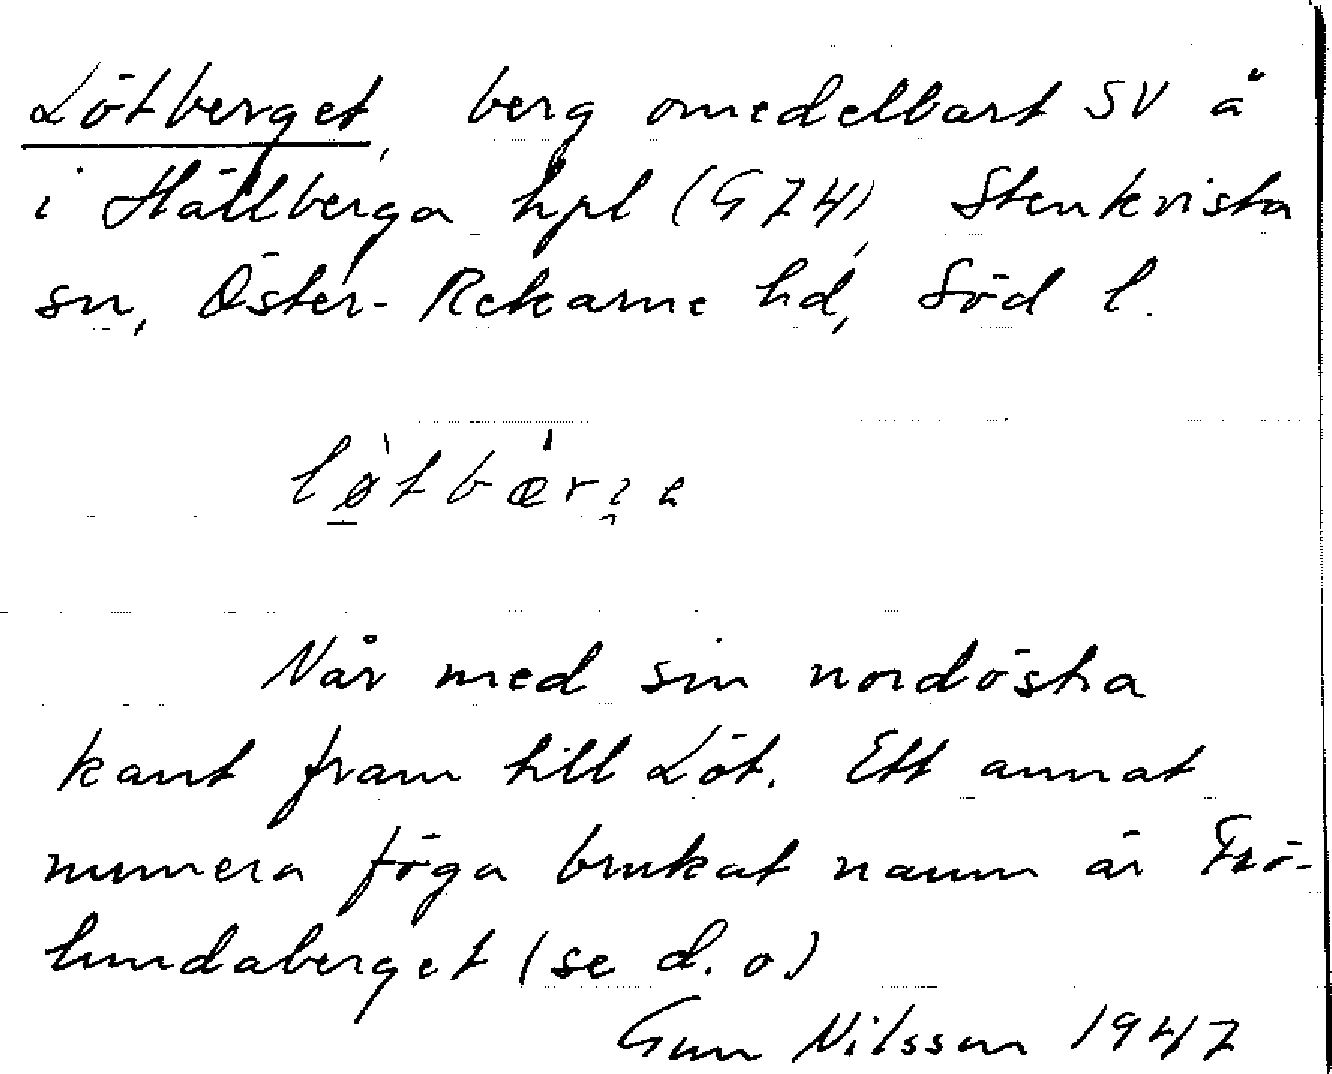 Lötberget, berg omedelbart SV å
i Hällberga hpl (G 74), Stenkvista
sn, Öster-Rekarne hd, Söd l.
Når med sin nordöstra
kant fram till Löt. Ett annat
numera föga brukat namn är Frö-
lundaberget (se d. o.)
Gun Nilsson 1947